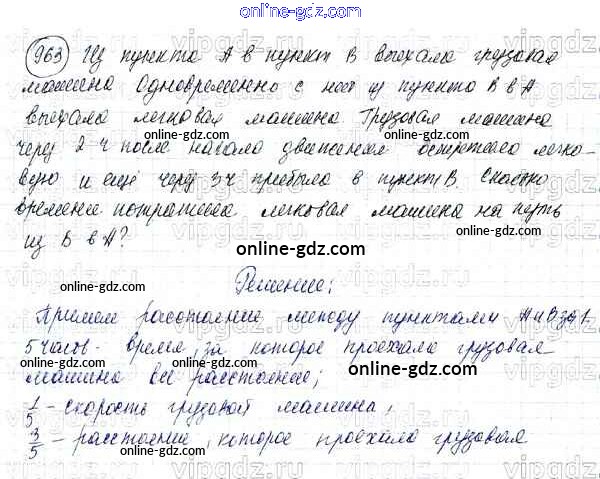 online-gdz.com
963 Из пункта А в пункт В выехала грузовая
машина Одновременно с ней из пункта В в А
выехала легковая машина. Грузовая машина
через 2 ч после начала движения встретила легко-
вую и ещё через 3ч прибыла в пункт В. Сколько
времени потратила легковая машина на путь
из В в А?
online-gdz.com
Решение:
Примем расстояние между пунктами А и В за 1.
5 часов - время, за которое проехала грузовая
машина все расстояние;
1/5 - скорость грузовой машина,
3/5 - расстояние, которое проехала грузовая